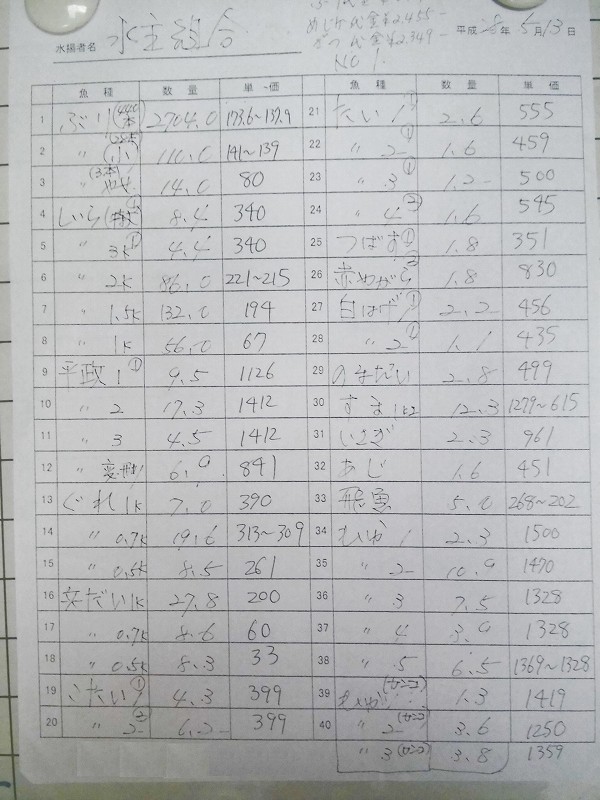 めじか代金¥2,455-
がつ代金¥2,349-
NO 1.
水揚者名 水主組合 平成28年5月13日
魚種 数量 単価 魚種 数量 単価
1 ぶり(440本) 2704.0 173.6~137.9 21 たい1 2.6 555
2 〃(小) 110.0 141~139 22 〃2① 1.6 459
3 〃(3本)やせ 14.0 80 23 〃3① 1.2 500
4 しいら 8.4 340 24 〃4② 1.6 545
5 〃3K① 4.4 340 25 つばす① 1.8 351
6 〃2K 86.0 221~215 26 赤めがら 1.8 830
7 〃1.5K 132.0 194 27 白はげ1① 2.2 456
8 〃1K 56.0 67 28 〃2① 1.1 435
9 平政1① 9.5 1126 29 のまだい 2.8 499
10 〃2 17.3 1412 30 すま 12.3 1279~615
11 〃3 4.5 1412 31 いさぎ 2.3 961
12 〃変形 6.9 841 32 あじ 1.6 451
13 ぐれ1K 7.0 390 33 飛魚 5.0 268~202
14 〃0.7K 19.6 313~309 34 もいか1 2.3 1500
15 〃0.5K 8.5 261 35 〃2 10.9 1470
16 文だい1K 27.8 200 36 〃3 7.5 1328
17 〃0.7K 8.6 60 37 〃4 3.9 1328
18 〃0.5K 8.3 33 38 〃5 6.5 1369~1328
19 こたい1① 4.3 399 39 もいか(サンコ) 1.3 1419
20 〃2② 6.2 399 40 〃2(サンコ) 3.6 1250
〃3(サンコ) 3.8 1359